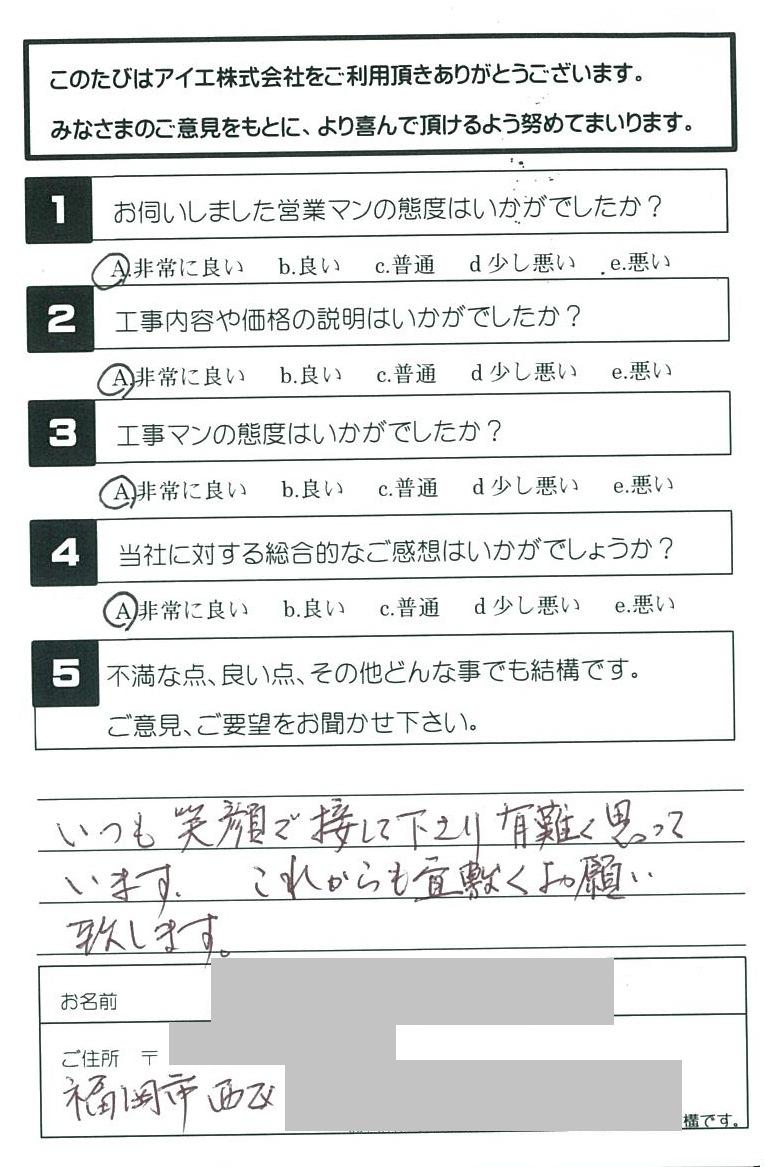 このたびはアイエ株式会社をご利用頂きありがとうございます。
みなさまのご意見をもとに、より喜んで頂けるよう努めてまいります。
1 お伺いしました営業マンの態度はいかがでしたか？
A.非常に良い b.良い c.普通 d 少し悪い e.悪い
2 工事内容や価格の説明はいかがでしたか？
A.非常に良い b.良い c.普通 d 少し悪い e.悪い
3 工事マンの態度はいかがでしたか？
A.非常に良い b.良い c.普通 d 少し悪い e.悪い
4 当社に対する総合的なご感想はいかがでしょうか？
A.非常に良い b.良い c.普通 d 少し悪い e.悪い
5 不満な点、良い点、その他どんな事でも結構です。
ご意見、ご要望をお聞かせ下さい。
いつも笑顔で接して下さり有難く思って
います。 これからも宜敷くお願い
致します。
お名前
ご住所 〒
福岡市西区
構です。